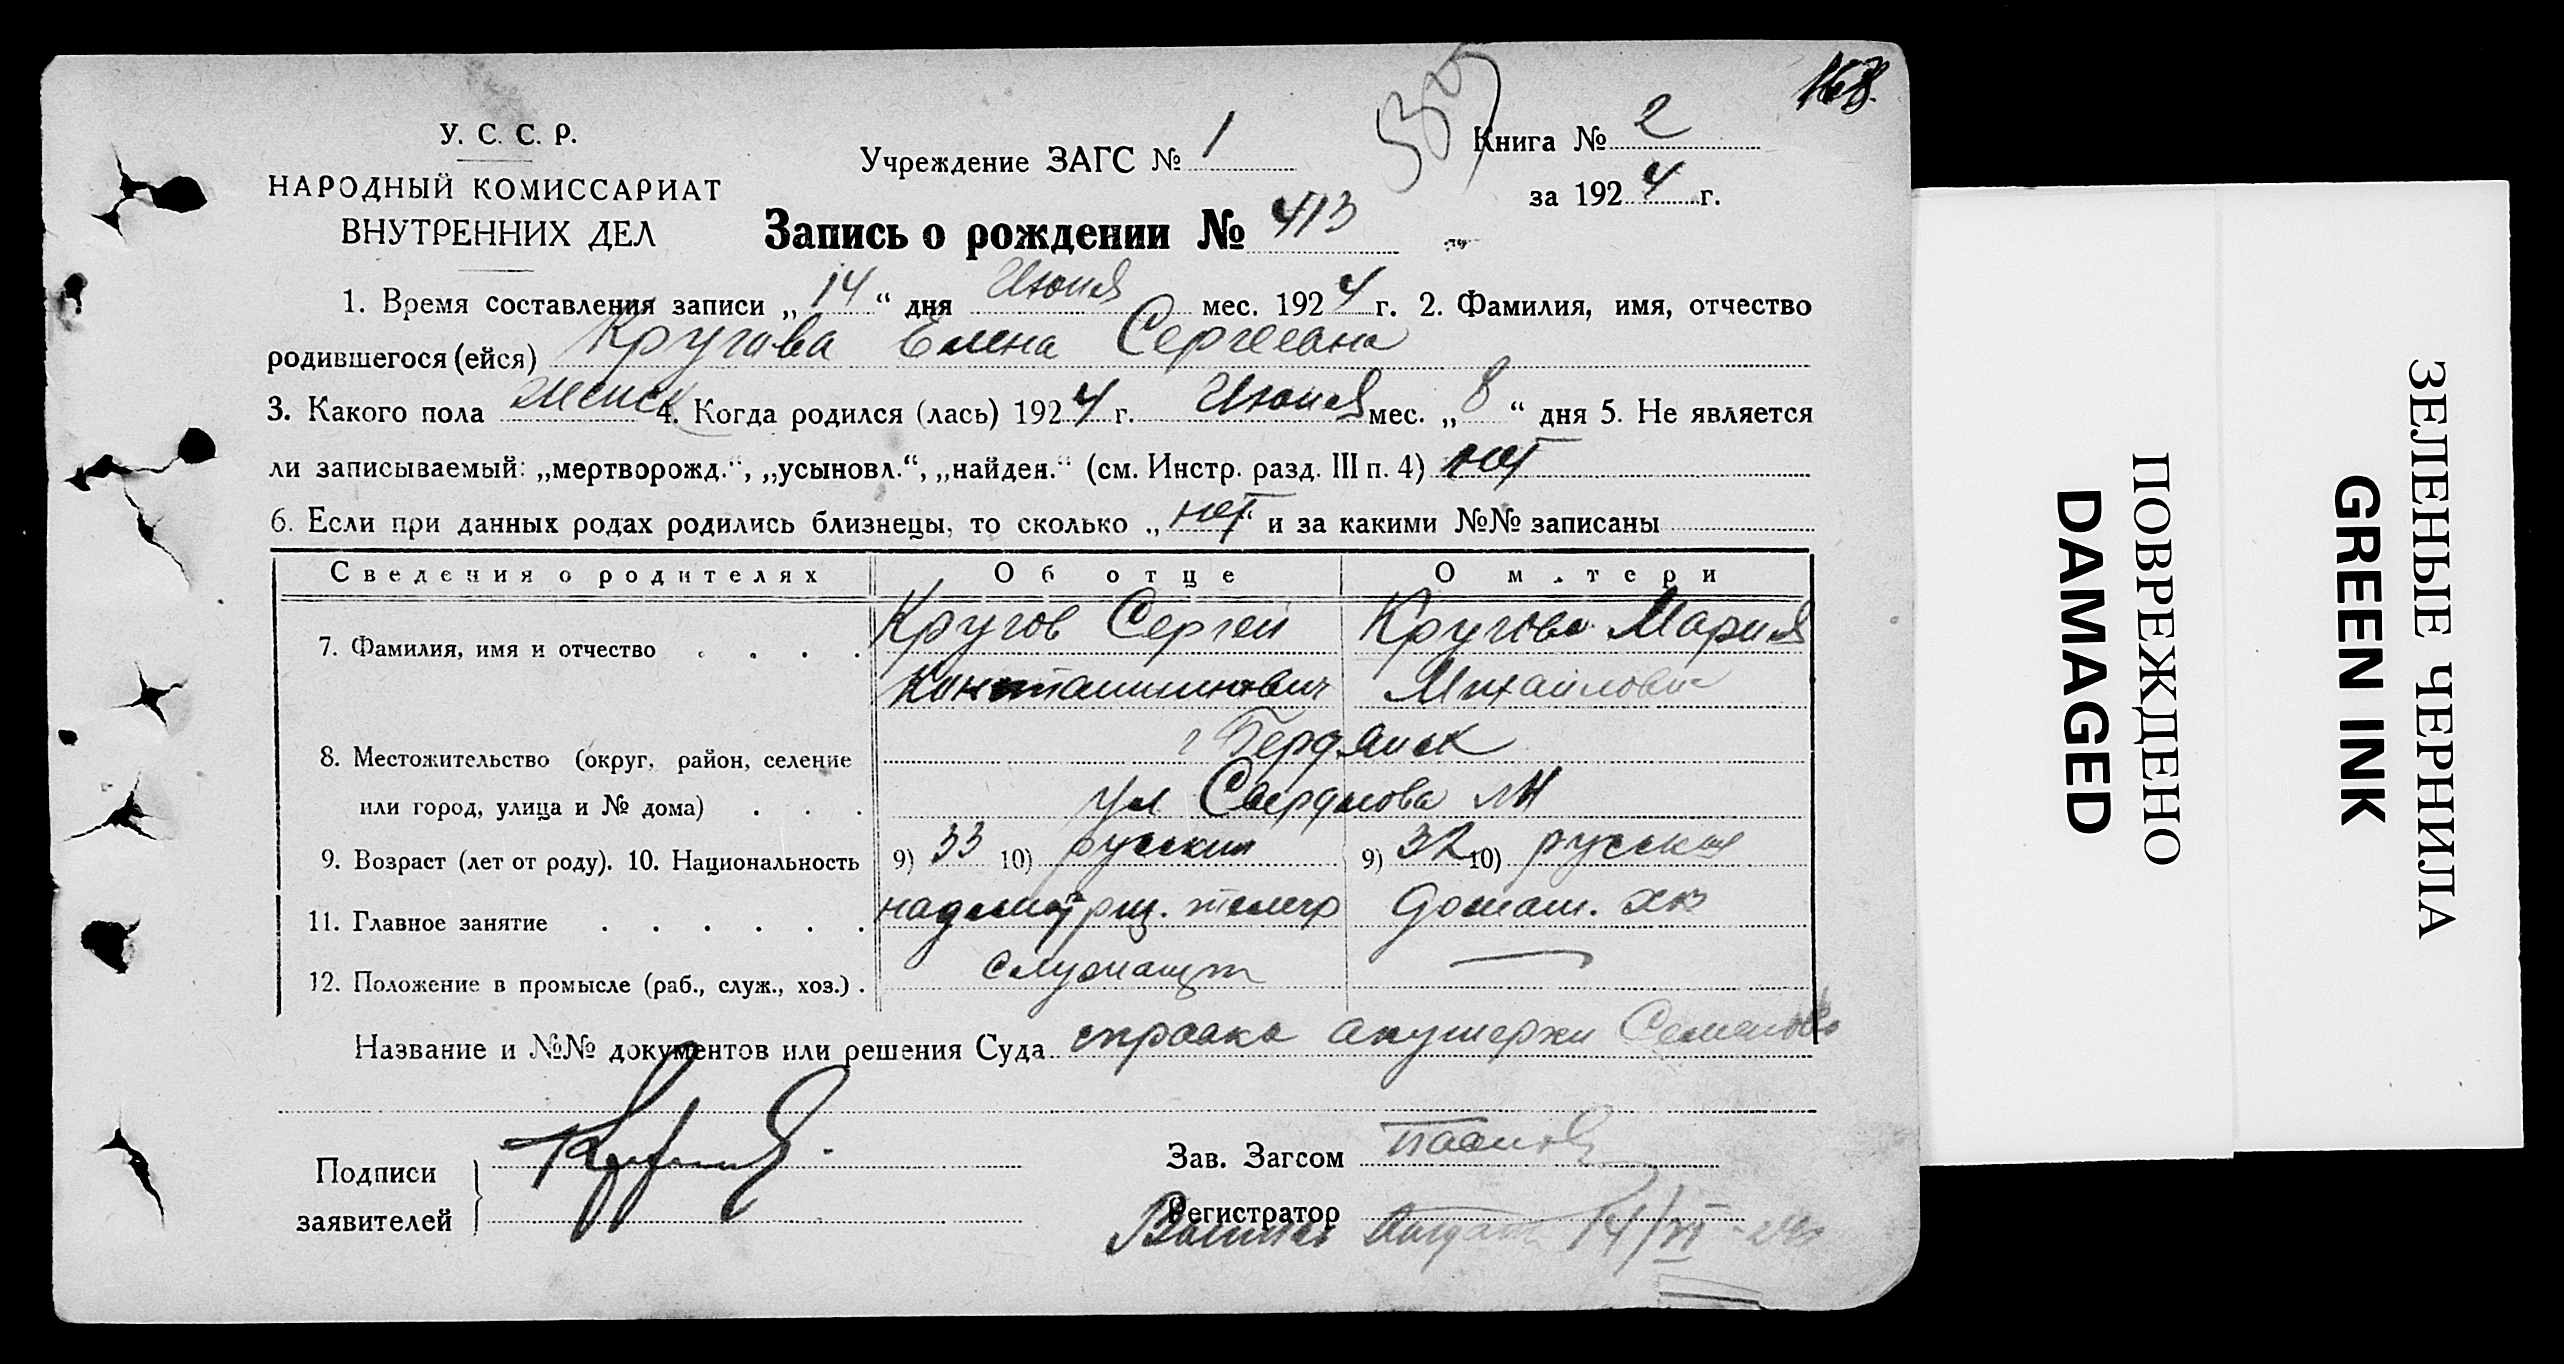 168.
У. С. С. Р.
НАРОДНЫЙ КОМИССАРИАТ
ВНУТРЕННИХ ДЕЛ
Учреждение ЗАГС № 1
Книга № 2
за 1924 г.
Запись о рождении № 413
1. Время составления записи „14“ дня Июня мес. 1924 г. 2. Фамилия, имя, отчество
родившегося (ейся) Кругова Елена Сергеевна
3. Какого пола женск 4. Когда родился (лась) 1924 г. Июня мес. „8“ дня 5. Не является
ли записываемый: „мертворожд.“, „усыновл.“, „найден.“ (см. Инстр. разд. III п. 4) нет
6. Если при данных родах родились близнецы, то сколько „нет“ и за какими №№ записаны
Сведения о родителях Об отце О матери
7. Фамилия, имя и отчество . . . . Кругов Сергей Кругова Мария
Константинович Михайловна
8. Местожительство (округ, район, селение г Бердянск
или город, улица и № дома) . . . ул Свердлова
9. Возраст (лет от роду). 10. Национальность 9) 33 10) русский 9) 32 10) русская
11. Главное занятие . . . . . . надсмотрщ. телегр домаш. хоз
12. Положение в промысле (раб., служ., хоз.) . служащий —
Название и №№ документов или решения Суда справка акушерки Семенова
Подписи
заявителей
Зав. Загсом
Регистратор
14/VI
ПОВРЕЖДЕНО
DAMAGED
ЗЕЛЕНЫЕ ЧЕРНИЛА
GREEN INK